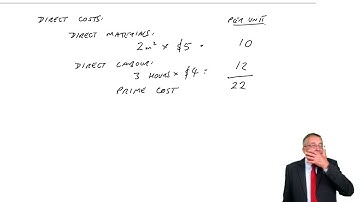 DIRECT COSTS: PER UNIT
DIRECT MATERIALS:
2m² × $5 = 10
DIRECT LABOUR:
3 HOURS × $4 = 12
PRIME COST 22